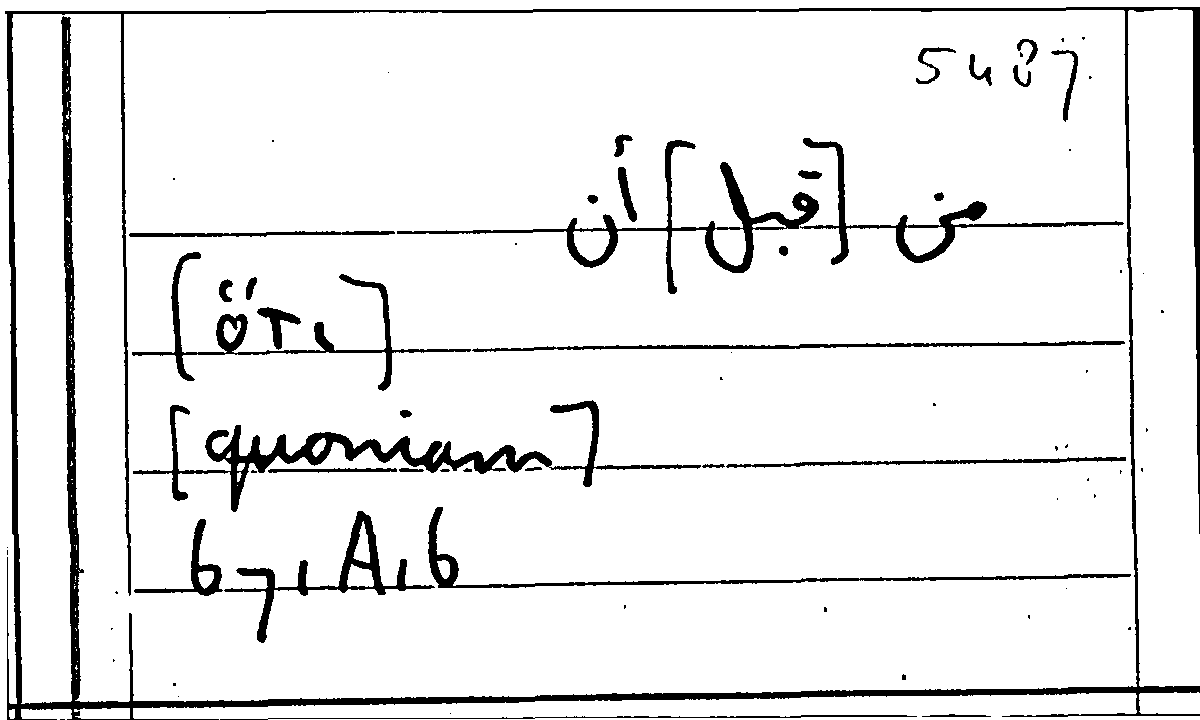 5487
من [قبل] أن
[ὅτι]
[quoniam]
67,A,6